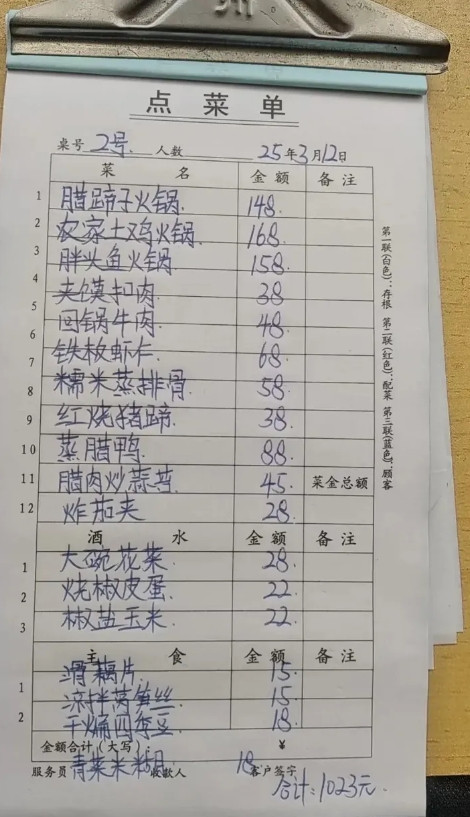 点菜单
桌号 2号. 人数 25年3月12日
菜名 金额 备注
1 腊蹄子火锅. 148.
2 农家土鸡火锅. 168.
3 胖头鱼火锅. 158.
4 夹馍扣肉. 38
5 回锅牛肉. 48.
6 铁板虾仁. 68.
7 糯米蒸排骨. 58.
8 红烧猪蹄. 38.
9 蒸腊鸭. 88.
10 腊肉炒蒜苔. 45. 菜金总额
11 炸茄夹 28.
12
酒水 金额 备注
1 大碗花菜. 28.
2 烧椒皮蛋. 22.
3 椒盐玉米. 22.
主食 金额 备注
滑藕片. 15.
1 凉拌莴笋丝. 15.
2 干煸四季豆. 18.
金额合计（大写）： ¥
服务员 青菜米糊. 收款人 18. 客户签字
合计：1023元.
第一联(白色):存根 第二联(红色):配菜 第三联(蓝色):顾客